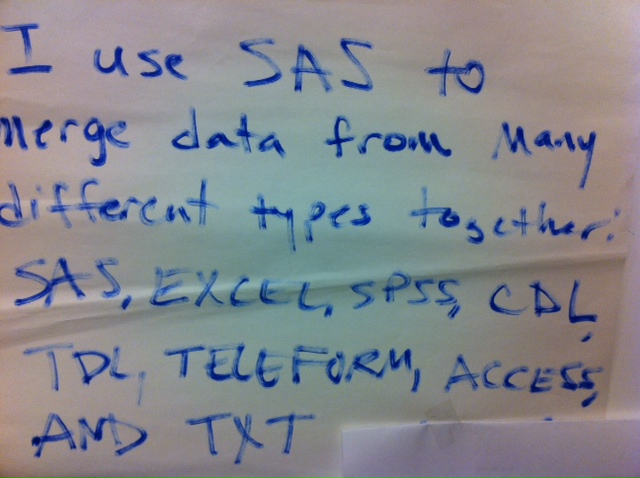 I use SAS to
merge data from many
different types together:
SAS, EXCEL, SPSS, CDL,
TDL, TELEFORM, ACCESS,
AND TXT